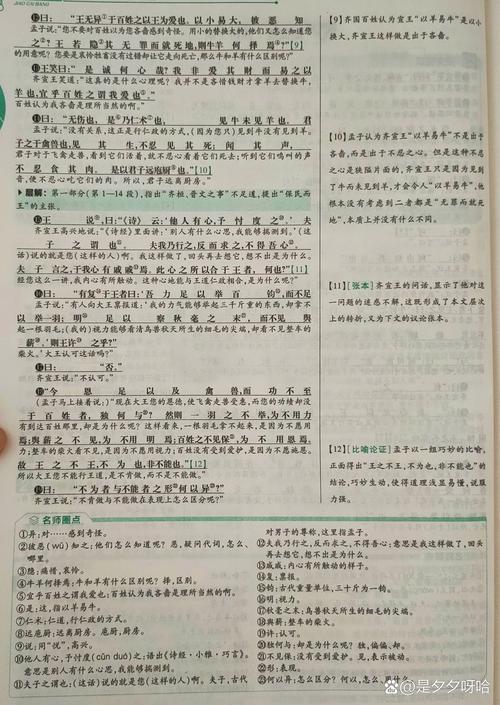 JIAO CAI BANG
⑫曰："王无异于百姓之以王为爱也。以小易大，彼恶知
孟子说："您不要对百姓以为您吝啬感到奇怪。用小的替换大的，他们又怎么知道您
之？王若隐其无罪而就死地，则牛羊何择焉？"【9】
的用意呢？您要是哀怜牲畜没有过错却让它走向死亡，那么牛和羊有什么区别呢？"
⑬王笑曰："是诚何心哉？我非爱其财而易之以
齐宣王笑道："这真的是什么心理呢？我并不是吝惜钱财才拿羊去替换牛，
羊也，宜乎百姓之谓我爱也。"
百姓认为我吝啬是理所当然的啊。"
⑭曰："无伤也，是乃仁术也，见牛未见羊也。君
孟子说："没有关系，这正是行仁政的方式，(因为您只)见到牛没有见到羊。
子之于禽兽也，见其生，不忍见其死；闻其声，
君子对于飞禽走兽，看到它们活着，就不忍心看着它们死去；听到它们鸣叫的声
不忍食其肉。是以君子远庖厨也。"【10】
音，便不忍心吃它们的肉。所以，君子远离厨房。"
层解：第一部分(第1—14段)，指出"齐桓、晋文之事"不足道，提出"保民而王"的主张。
⑮王说，曰："《诗》云：'他人有心，予忖度之。'夫
齐宣王高兴地说："《诗经》里面讲：'别人有什么心思，我能够揣测到。'(这
子之谓也。夫我乃行之，反而求之，不得吾心。
话)说的就是您(这样的人)啊。我这样做了，回头再去想它，想不出是为什么。
夫子言之，于我心有戚戚焉。此心之所以合于王者，何也？"【11】
经您这么一讲，我内心有所触动。这种心地能与王道仁政相合，是为什么呢？"
⑯曰："有复于王者曰：'吾力足以举百钧，而不足
孟子说："有人向大王禀报道：'我的力气能够举起三千斤重的东西，却拿不
以举一羽；明足以察秋毫之末，而不见舆
起一根羽毛；(我的)视力能够看清鸟兽秋天所生的细毛的尖端，却看不见整车的
薪'，则王许之乎？"
柴火。'大王认可这话吗？"
⑰曰："否。"
齐宣王说："不认可。"
⑱"今恩足以及禽兽，而功不至
(孟子马上接着说：)"现在大王您的恩德，使飞禽走兽受惠，而您的功绩却没
于百姓者，独何与？然则一羽之不举，为不用力
有到达百姓那里，却是为什么呢？这样看来，一根羽毛拿不起来，是因为不愿用
焉；舆薪之不见，为不用明焉；百姓之不见保，为不用恩焉。
力；整车的柴火看不见，是因为不愿用视力；百姓没有受到爱护，是因为不愿施恩。
故王之不王，不为也，非不能也。"【12】
所以大王您不能行王道，是不肯做，而不是不能做。"
⑲曰："不为者与不能者之形何以异？"
齐宣王说："不肯做与不能做在表现上怎么区分呢？"
【9】齐国百姓认为宣王"以羊易牛"是以小换大，齐宣王这样做是出于吝啬。
【10】孟子认为齐宣王"以羊易牛"不是出于吝啬，而是出于不忍之心。但是这种不忍之心是狭隘片面的，齐宣王只是因为见到了牛而未见到羊，才会令人"以羊易牛"，他根本没有考虑到二者都是"无罪而就死地"，本质上并没有什么不同。
【11】[张本]齐宣王的问话，显示了他对这一问题的迷惑不解，这既形成了本文层次上的转折，又为下文的议论张本。
【12】[比喻论证]孟子以一组巧妙的比喻，正面得出"王之不王，不为也，非不能也"的结论，巧妙生动，使得道理浅显易懂，说服力强。
名师圈点
①异：对……感到奇怪。
②彼恶(wū)知之：他们怎么知道呢？恶，疑问代词，怎么、哪里。
③隐：痛惜，哀怜。
④牛羊何择焉：牛和羊有什么区别呢？择，区别。
⑤宜乎百姓之谓我爱也：百姓认为我吝啬是理所当然的啊。
⑥是：这，指以羊易牛。
⑦仁术：仁道，行仁政的方式。
⑧远庖厨：远离厨房。庖厨，厨房。
⑨说：同"悦"，高兴。
⑩他人有心，予忖度(cǔn duó)之：语出《诗经·小雅·巧言》。意思是别人有什么心思，我能够揣测到。
⑪夫子之谓也：(这话)说的就是您(这样的人)啊。夫子，古代
对男子的尊称，这里指孟子。
⑫夫我乃行之，反而求之，不得吾心：意思是我这样做了，回头再去想它，想不出是为什么。
⑬戚戚：内心有所触动的样子。
⑭复：禀报。
⑮钧：古代重量单位，三十斤为一钧。
⑯明：视力。
⑰秋毫之末：鸟兽秋天所生的细毛的尖端。
⑱舆薪：整车的柴火。
⑲许：认可。
⑳独何与：却是为什么呢？独，偏偏、却。
㉑不见保：没有受到爱护。见，表示被动。
㉒形：表现。
㉓何以异：怎么区分？何以，怎么
@是夕夕呀哈